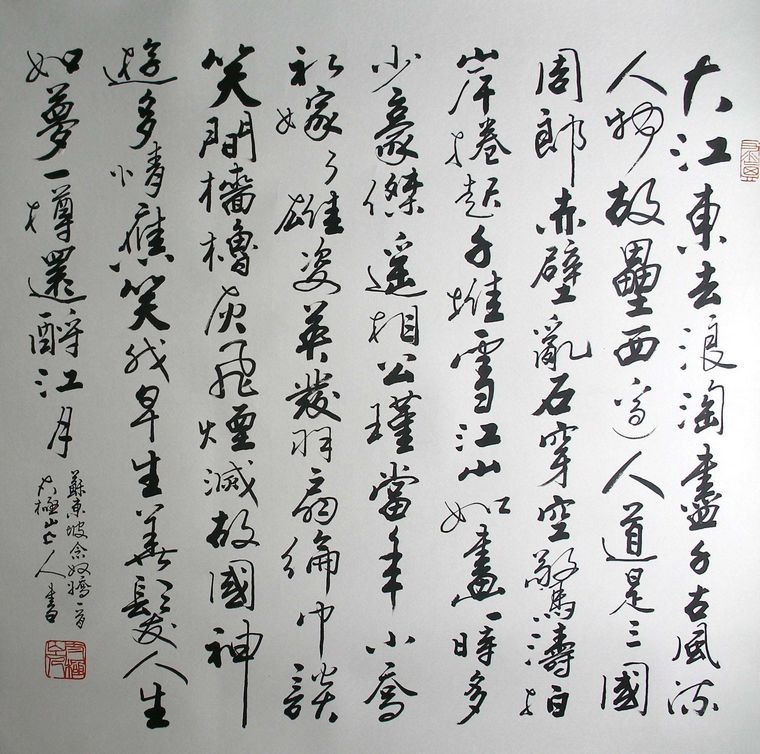 大江東去浪淘盡千古風流
人物故壘西邊人道是三國
周郎赤壁亂石穿空驚濤拍
岸捲起千堆雪江山如畫一時多
少豪傑遥想公瑾當年小喬
初嫁了雄姿英發羽扇綸巾談
笑間檣櫓灰飛煙滅故國神
遊多情應笑我早生華髮人生
如夢一樽還酹江月
蘇東坡念奴嬌一首
極山人書